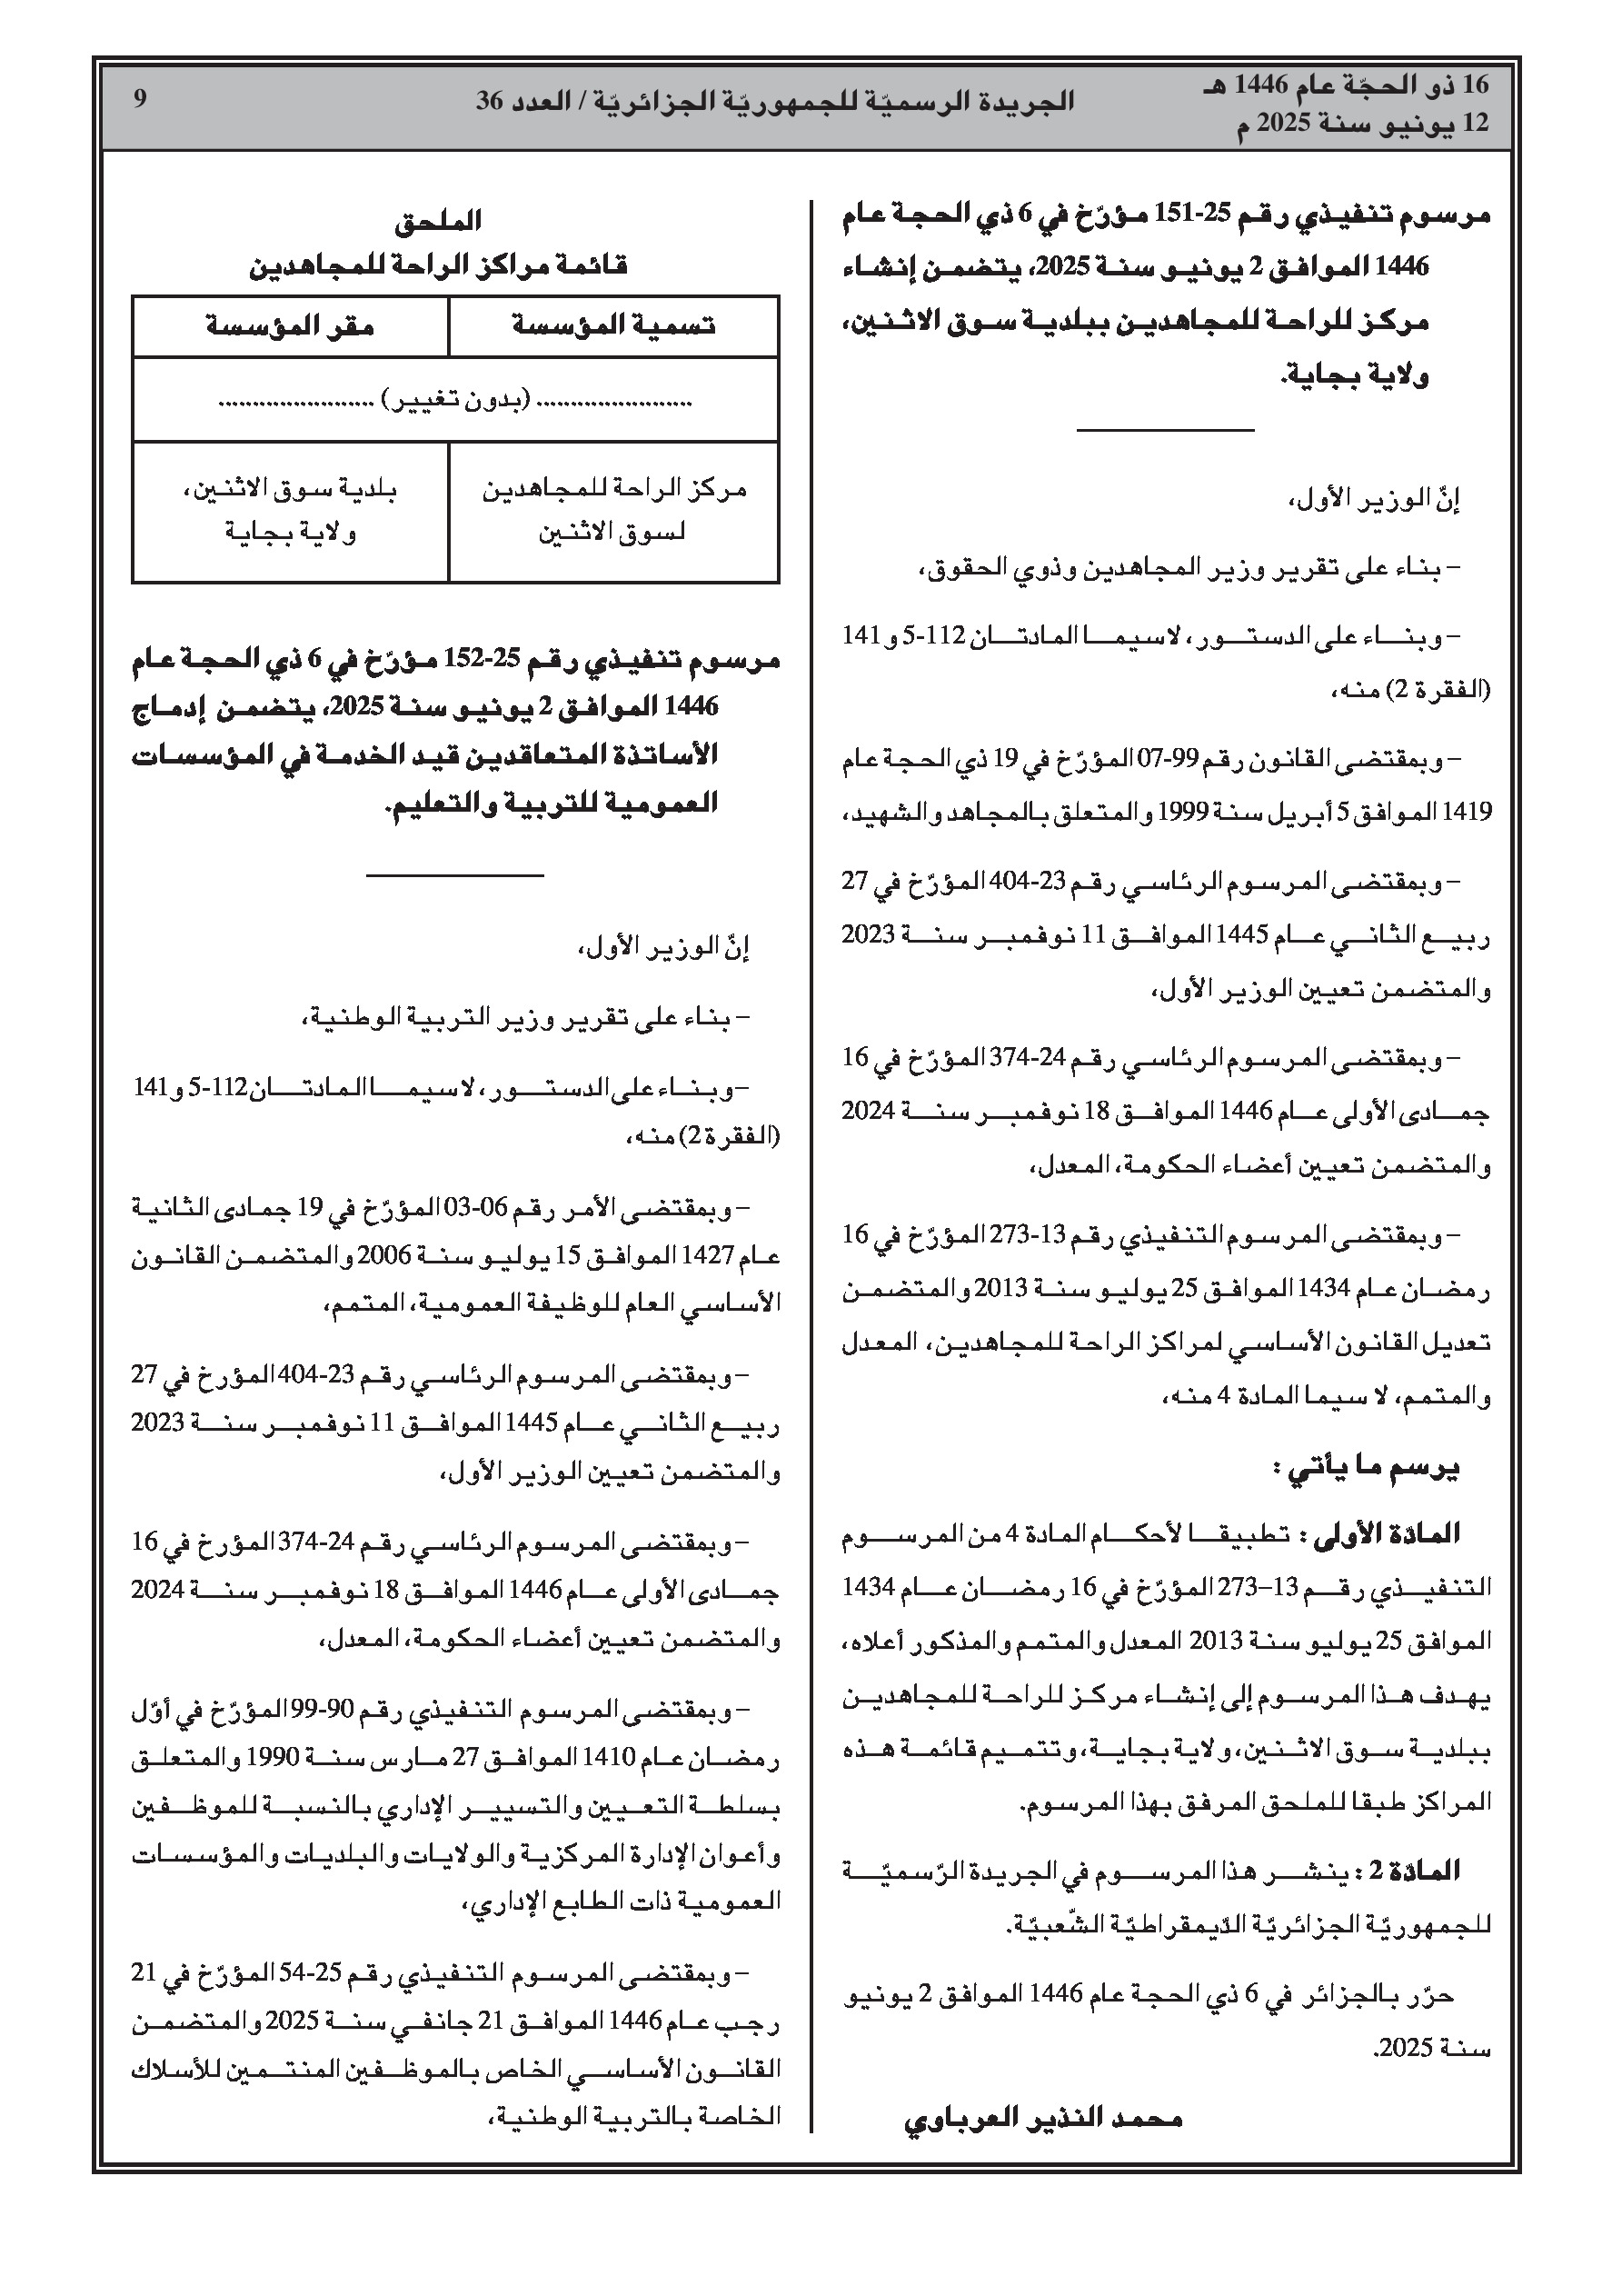 16 ذو الحجّة عام 1446 هـ
12 يونيو سنة 2025 م
الجريدة الرسميّة للجمهوريّة الجزائريّة / العدد 36
9
مرسوم تنفيذي رقم 25-151 مؤرّخ في 6 ذي الحجة عام
1446 الموافق 2 يونيو سنة 2025، يتضمن إنشاء
مركز للراحة للمجاهدين ببلدية سوق الاثنين،
ولاية بجاية.
إنّ الوزير الأول،
– بناء على تقرير وزير المجاهدين وذوي الحقوق،
– وبناء على الدستور، لاسيما المادتان 112-5 و141
(الفقرة 2) منه،
– وبمقتضى القانون رقم 99-07 المؤرّخ في 19 ذي الحجة عام
1419 الموافق 5 أبريل سنة 1999 والمتعلق بالمجاهد والشهيد،
– وبمقتضى المرسوم الرئاسي رقم 23-404 المؤرّخ في 27
ربيع الثاني عام 1445 الموافق 11 نوفمبر سنة 2023
والمتضمن تعيين الوزير الأول،
– وبمقتضى المرسوم الرئاسي رقم 24-374 المؤرّخ في 16
جمادى الأولى عام 1446 الموافق 18 نوفمبر سنة 2024
والمتضمن تعيين أعضاء الحكومة، المعدل،
– وبمقتضى المرسوم التنفيذي رقم 13-273 المؤرّخ في 16
رمضان عام 1434 الموافق 25 يوليو سنة 2013 والمتضمن
تعديل القانون الأساسي لمراكز الراحة للمجاهدين، المعدل
والمتمم، لا سيما المادة 4 منه،
يرسم ما يأتي :
المادّة الأولى : تطبيقا لأحكام المادة 4 من المرسوم
التنفيذي رقم 13–273 المؤرّخ في 16 رمضان عام 1434
الموافق 25 يوليو سنة 2013 المعدل والمتمم والمذكور أعلاه،
يهدف هذا المرسوم إلى إنشاء مركز للراحة للمجاهدين
ببلدية سوق الاثنين، ولاية بجاية، وتتميم قائمة هذه
المراكز طبقا للملحق المرفق بهذا المرسوم.
المادّة 2 : ينشر هذا المرسوم في الجريدة الرّسميّة
للجمهوريّة الجزائريّة الدّيمقراطيّة الشّعبيّة.
حرّر بالجزائر في 6 ذي الحجة عام 1446 الموافق 2 يونيو
سنة 2025.
محمد النذير العرباوي
الملحق
قائمة مراكز الراحة للمجاهدين
تسمية المؤسسة
مقر المؤسسة
....................... (بدون تغيير) .......................
مركز الراحة للمجاهدين
لسوق الاثنين
بلدية سوق الاثنين،
ولاية بجاية
مرسوم تنفيذي رقم 25-152 مؤرّخ في 6 ذي الحجة عام
1446 الموافق 2 يونيو سنة 2025، يتضمن إدماج
الأساتذة المتعاقدين قيد الخدمة في المؤسسات
العمومية للتربية والتعليم.
إنّ الوزير الأول،
– بناء على تقرير وزير التربية الوطنية،
– وبناء على الدستور، لاسيما المادتان 112-5 و141
(الفقرة 2) منه،
– وبمقتضى الأمر رقم 06-03 المؤرّخ في 19 جمادى الثانية
عام 1427 الموافق 15 يوليو سنة 2006 والمتضمن القانون
الأساسي العام للوظيفة العمومية، المتمم،
– وبمقتضى المرسوم الرئاسي رقم 23-404 المؤرخ في 27
ربيع الثاني عام 1445 الموافق 11 نوفمبر سنة 2023
والمتضمن تعيين الوزير الأول،
– وبمقتضى المرسوم الرئاسي رقم 24-374 المؤرخ في 16
جمادى الأولى عام 1446 الموافق 18 نوفمبر سنة 2024
والمتضمن تعيين أعضاء الحكومة، المعدل،
– وبمقتضى المرسوم التنفيذي رقم 90-99 المؤرّخ في أوّل
رمضان عام 1410 الموافق 27 مارس سنة 1990 والمتعلق
بسلطة التعيين والتسيير الإداري بالنسبة للموظفين
وأعوان الإدارة المركزية والولايات والبلديات والمؤسسات
العمومية ذات الطابع الإداري،
– وبمقتضى المرسوم التنفيذي رقم 25-54 المؤرّخ في 21
رجب عام 1446 الموافق 21 جانفي سنة 2025 والمتضمن
القانون الأساسي الخاص بالموظفين المنتمين للأسلاك
الخاصة بالتربية الوطنية،